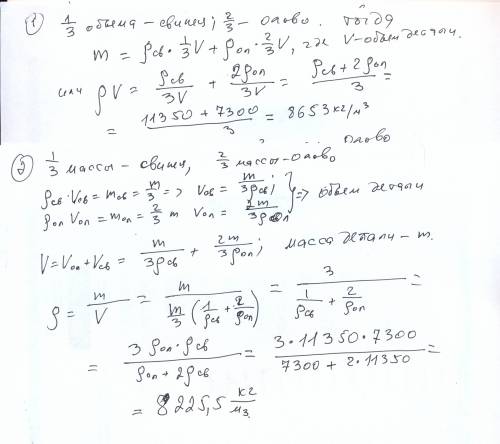 1) 1/3 объёма - свинец; 2/3 - олово. Тогда
m = ρсв · 1/3 V + ρол · 2/3 V, где V - объём детали.
или ρV = ρсв/3V + 2ρол/3V = (ρсв + 2ρол)/3 =
= (11350 + 7300)/3 = 8653 кг/м³
2) 1/3 массы - свинец, 2/3 массы - олово
ρсв · Vсв = mсв = m/3 => Vсв = m/3ρсв;
ρол Vол = mол = 2/3 m Vол = 2m/3ρол } => объём детали
V = Vол + Vсв = m/3ρсв + 2m/3ρол; масса детали - m.
ρ = m/V = m/(m/3 (1/ρсв + 2/ρол)) = 3/(1/ρсв + 2/ρол) =
= 3ρол · ρсв/(ρол + 2ρсв) = 3 · 11350 · 7300/(7300 + 2 · 11350) =
= 8225,5 кг/м3.